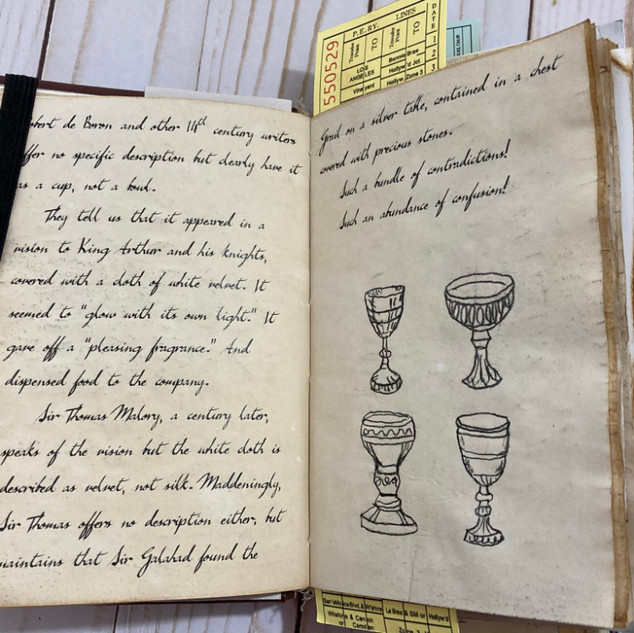 550529
P.E. RY. LINES
TO
TO
DATE
LOS
ANGELES
Vineyard
Zone 3
Robert de Boron and other 14th century writers
offer no specific description but clearly have it
as a cup, not a bowl.
They tell us that it appeared in a
vision to King Arthur and his knights,
covered with a cloth of white velvet. It
seemed to "glow with its own light." It
gave off a "pleasing fragrance." And
dispensed food to the company.
Sir Thomas Malory, a century later,
speaks of the vision but the white cloth is
described as velvet, not silk. Maddeningly,
Sir Thomas offers no description either, but
maintains that Sir Galahad found the
Grail on a silver table, contained in a chest
covered with precious stones.
Such a bundle of contradictions!
Such an abundance of confusion!
La Brea & SM or
Zone 3